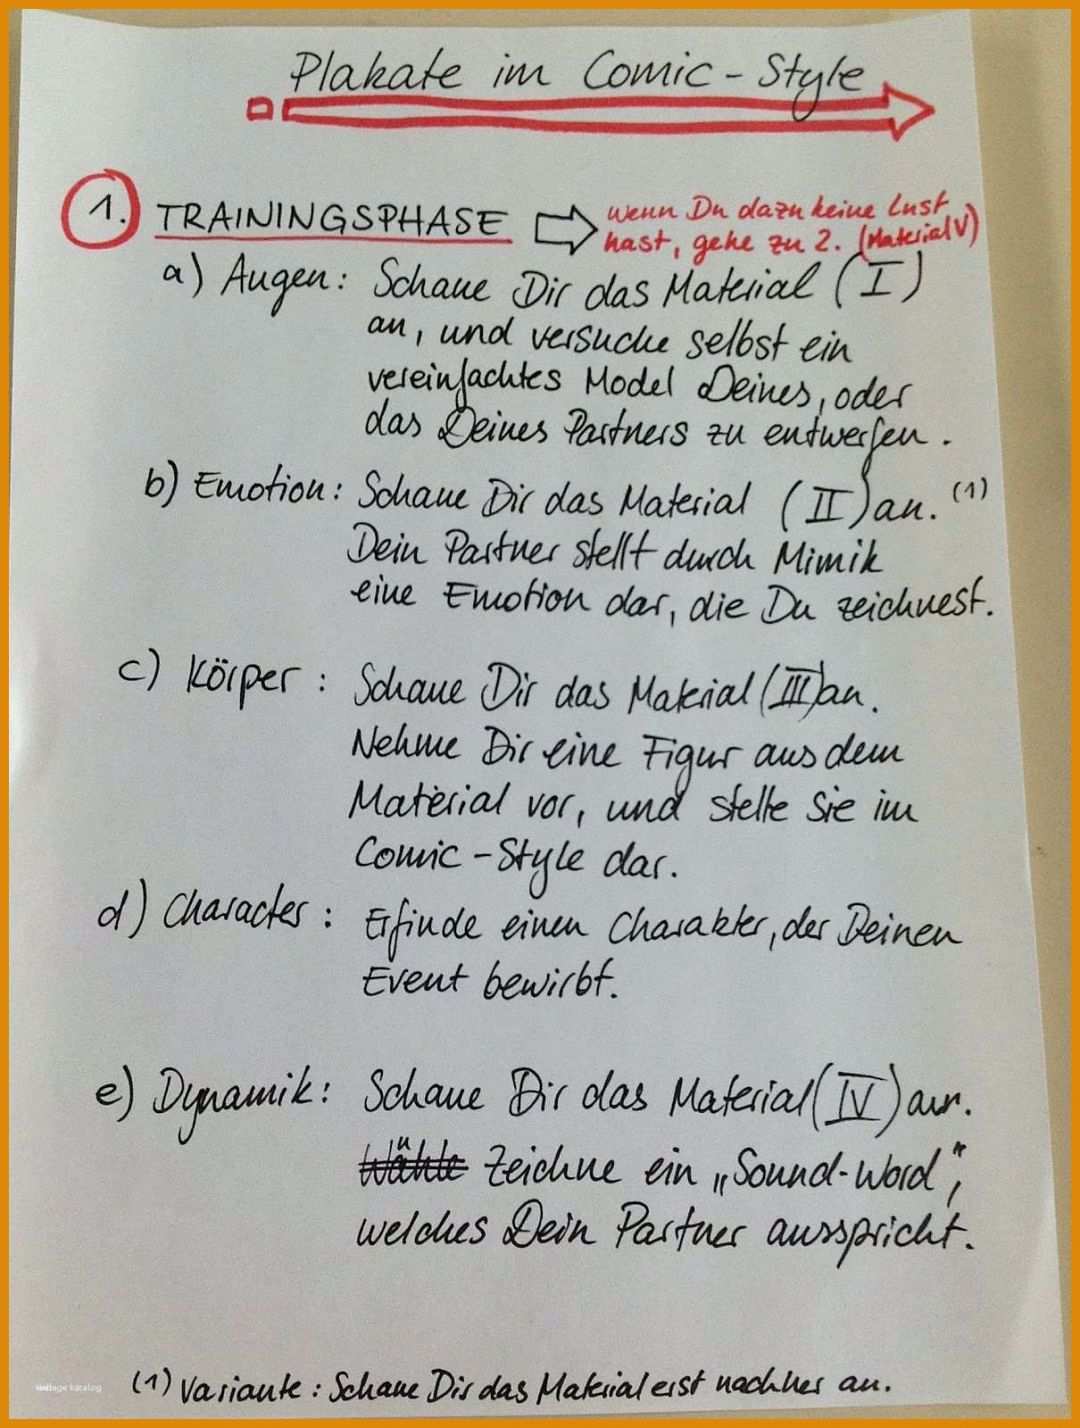 Plakate im Comic-Style
1. TRAININGSPHASE
wenn Du dazu keine Lust
hast, gehe zu 2. (Material V)
a) Augen: Schaue Dir das Material (I)
an, und versuche selbst ein
vereinfachtes Model Deines, oder
das Deines Partners zu entwerfen.
b) Emotion: Schaue Dir das Material (II) an. (1)
Dein Partner stellt durch Mimik
eine Emotion dar, die Du zeichnest.
c) Körper: Schaue Dir das Material (III) an.
Nehme Dir eine Figur aus dem
Material vor, und stelle Sie im
Comic-Style dar.
d) Character: Erfinde einen Charakter, der Deinen
Event bewirbt.
e) Dynamik: Schaue Dir das Material (IV) an.
Wähle Zeichne ein „Sound-Word“,
welches Dein Partner ausspricht.
(1) Variante: Schaue Dir das Material erst nachher an.